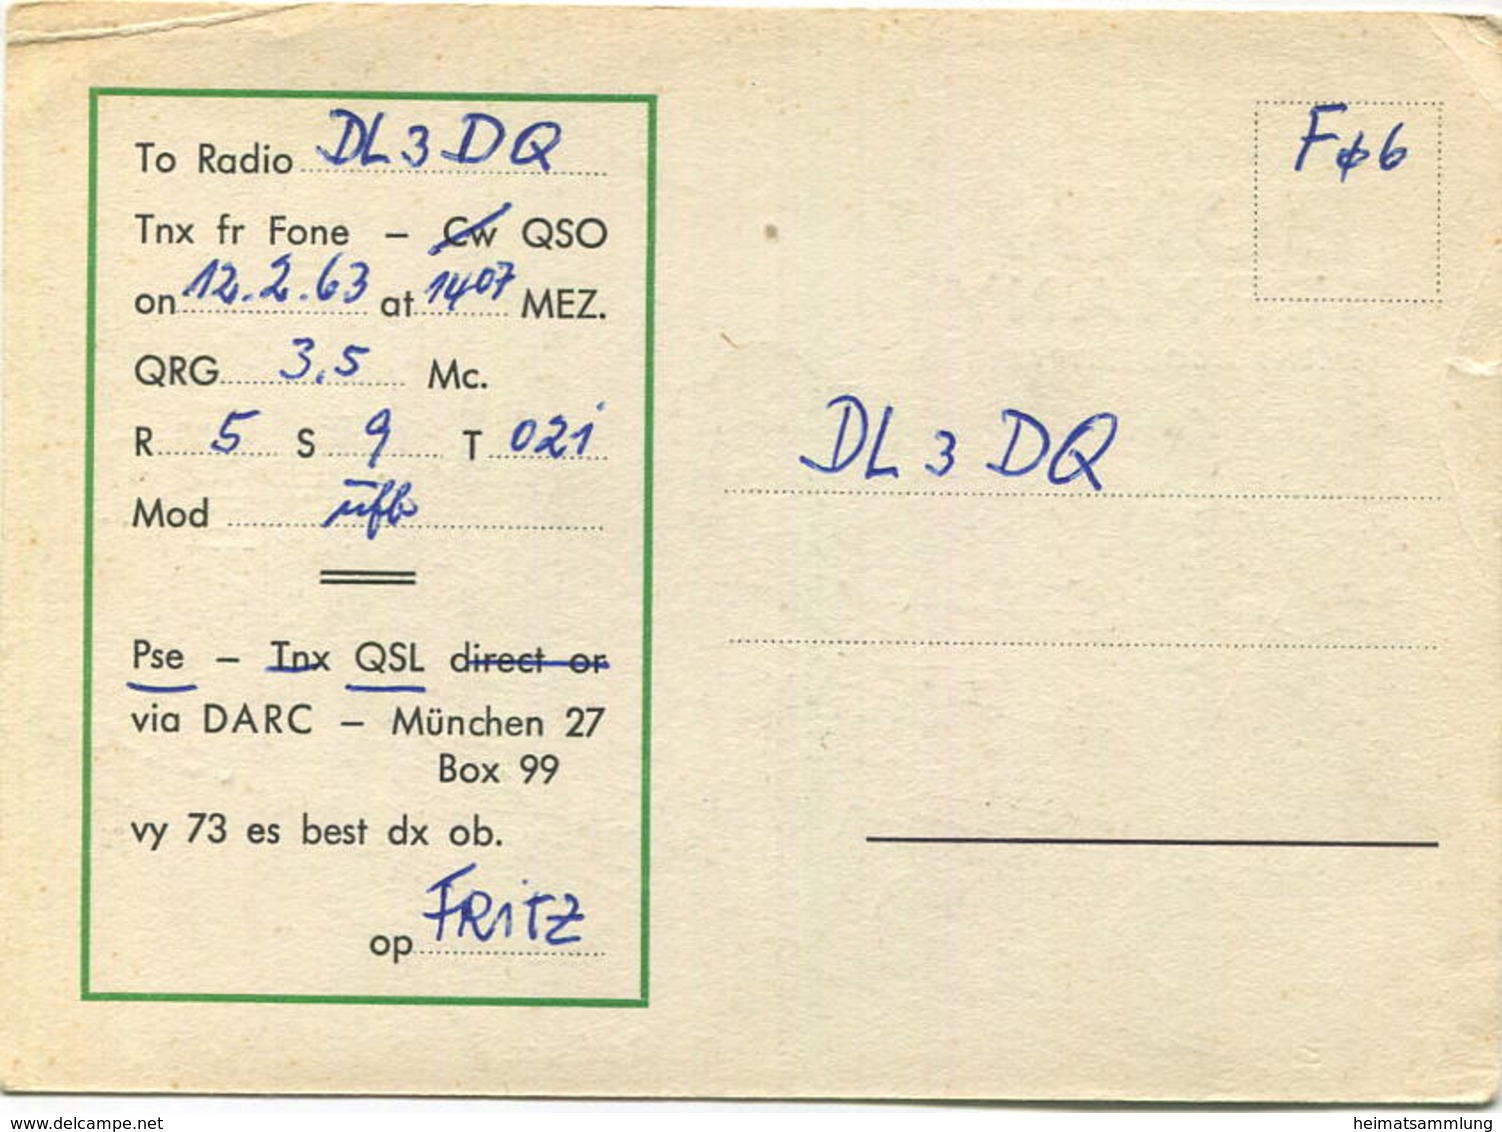 To Radio DL3DQ
Tnx fr Fone – Cw QSO
on 12.2.63 at 1407 MEZ.
QRG 3.5 Mc.
R 5 S 9 T
Mod ufb
Pse – Tnx QSL direct or
via DARC – München 27
Box 99
vy 73 es best dx ob.
op FRITZ
Fø6
DL3DQ
www.delcampe.net
heimatsammlung